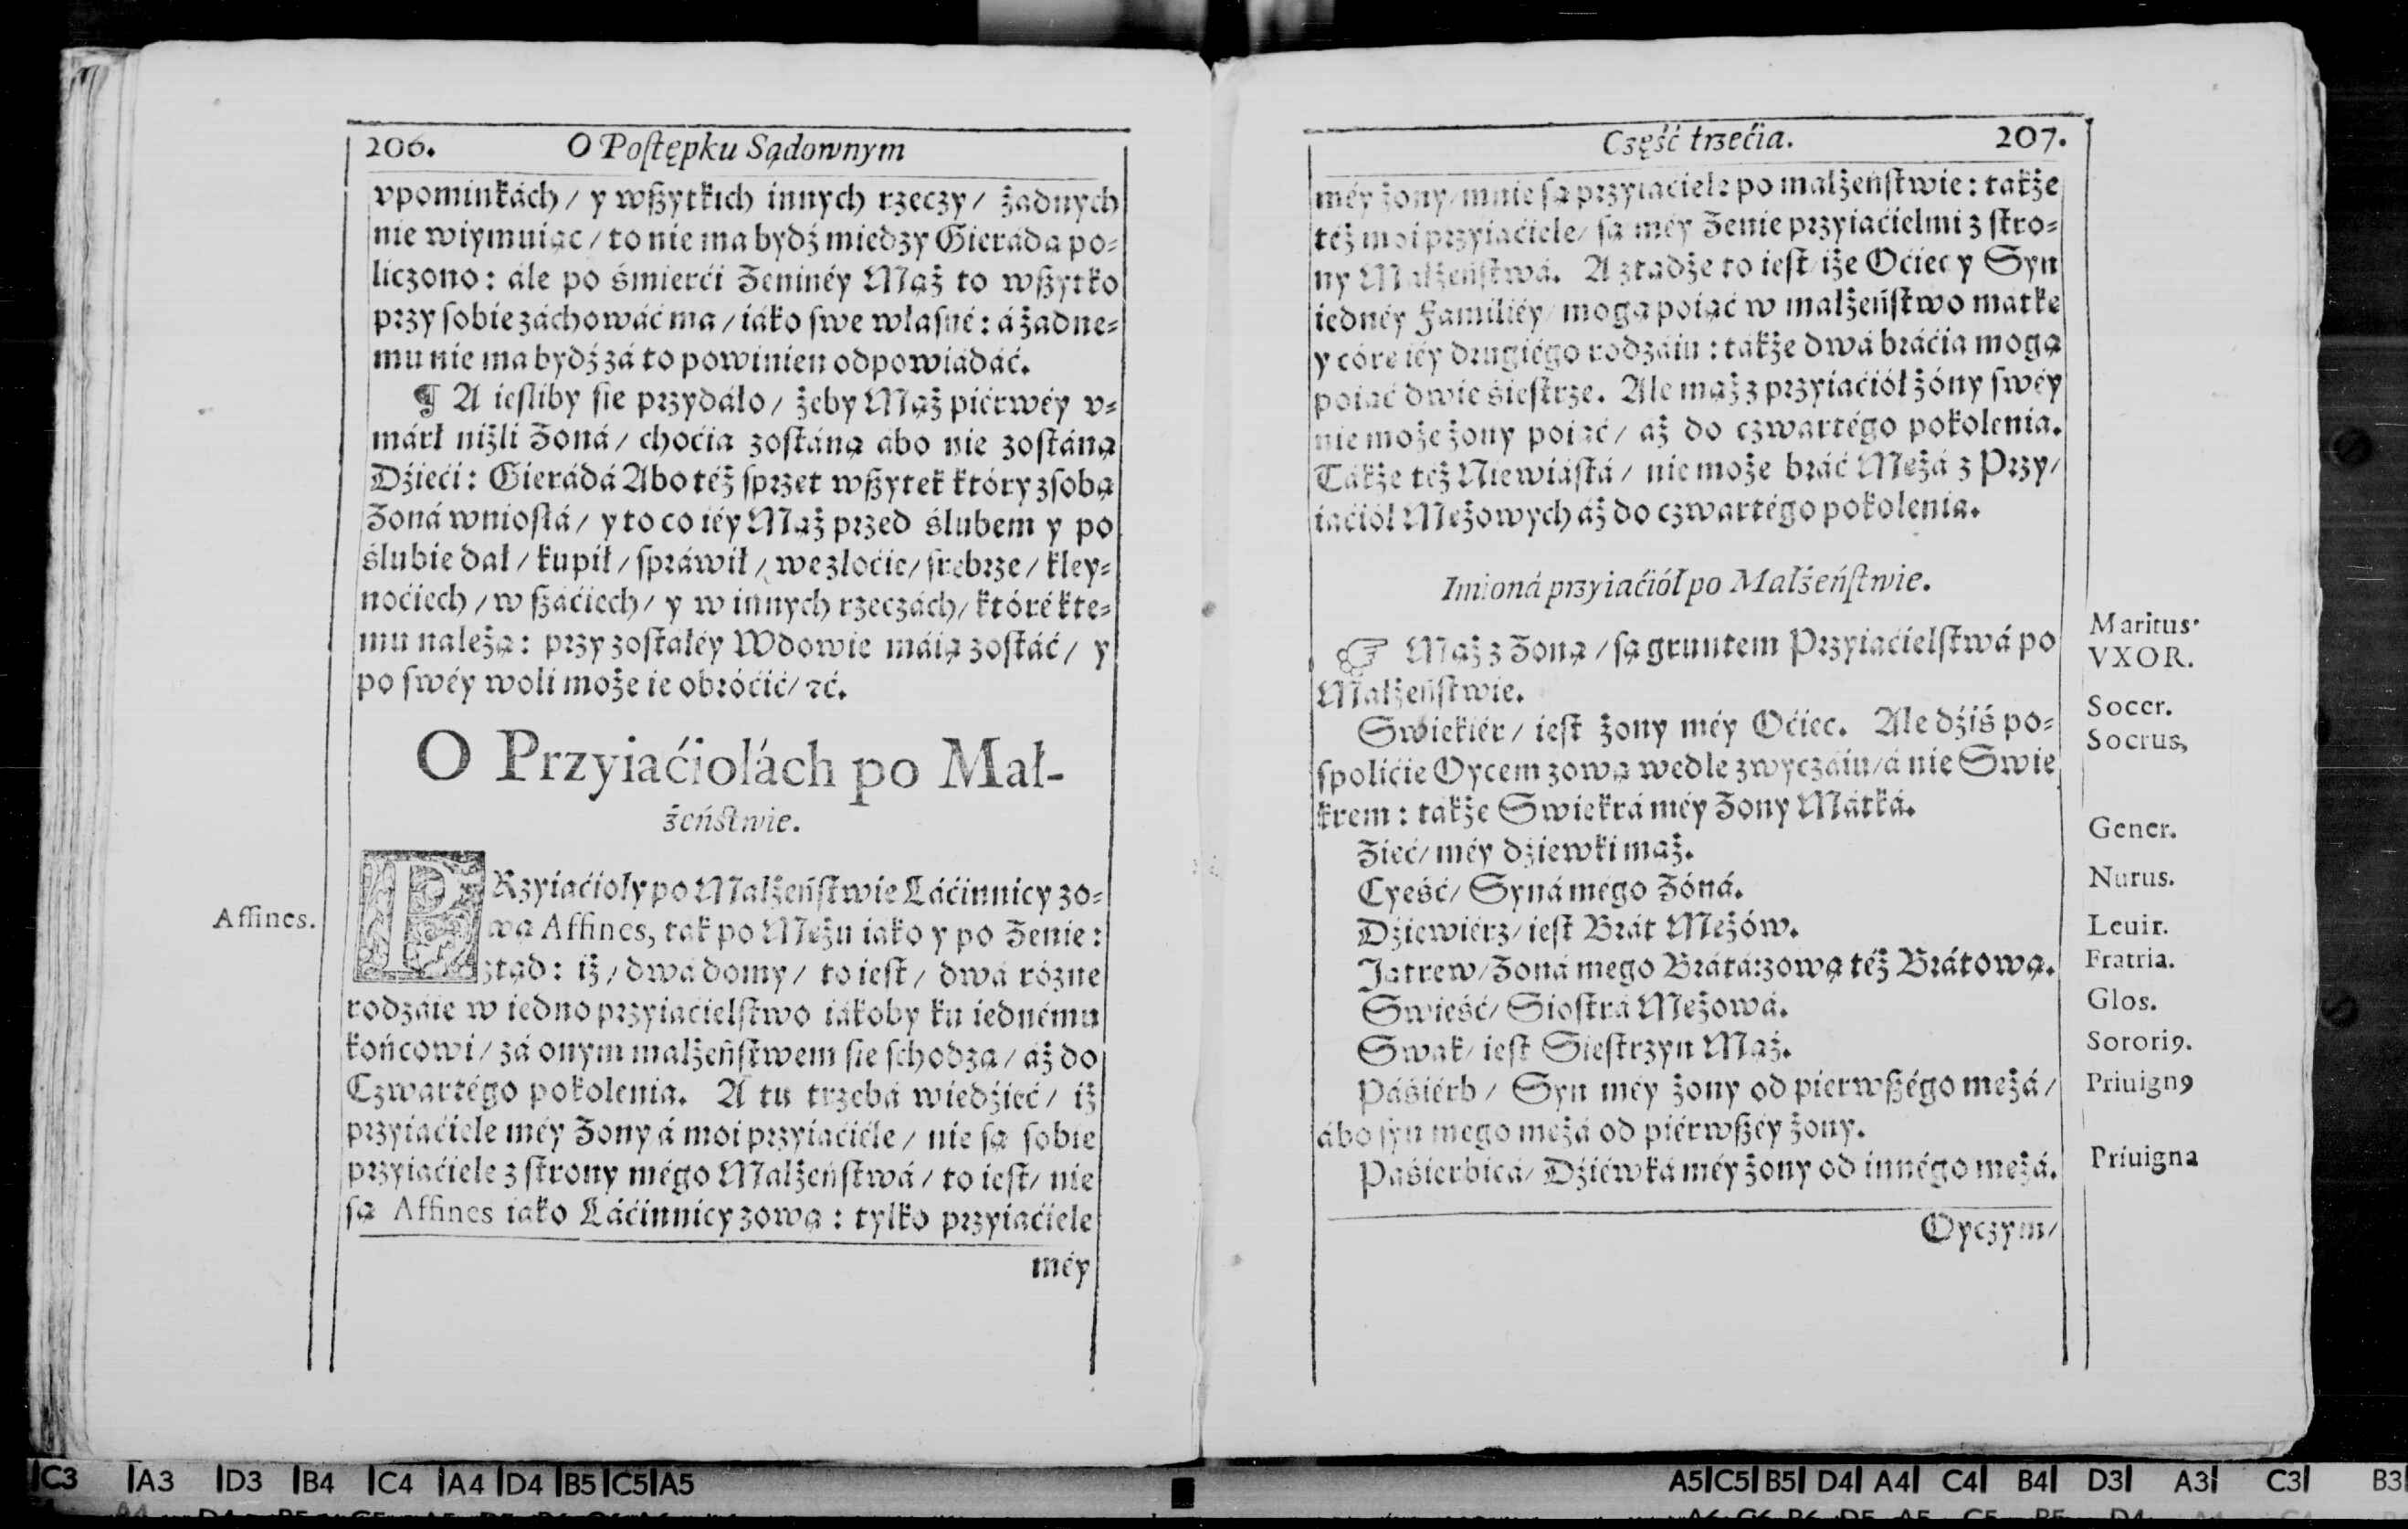 206. O Poſtępku Sądownym
vpominkách / y wßytkich innych rzeczy / żadnych
nie wiymuiąc / to nie ma bydź miedzy Gierádą po⸗
liczono: ále po śmierći Żeninéy Mąż to wßytko
przy sobie záchowáć ma / iáko swe własné: á żadne⸗
mu nie ma bydź zá to powinien odpowiádáć.
¶ A iesliby sie przydáło / żeby Mąż piérwéy v⸗
márł niżli Żoná / choćia zostáną ábo nie zostáną
Dźieći: Gierádá Abo téż sprzet wßytek który z sobą
Żoná wniosłá / y to co iéy Mąż przed ślubem y po
ślubie dał / kupił / spráwił / we złoćie / srebrze / kley⸗
noćiech / w ßáćiech / y w innych rzeczách / któré kte⸗
mu należą: przy zostáłéy Wdowie máią zostáć / y
po swéy woli może ie obróćić / ꝛć.
O Przyiaćiołách po Mał-
żeństwie.
PRzyiaćioły po Małżeństwie Láćinnicy zo⸗
Affines.
wą Affines, tak po Mężu iako y po Żenie:
ztąd: iż / dwá domy / to iest / dwá rózne
rodzáie w iedno przyiaćielstwo iákoby ku iednému
końcowi / zá onym małżeństwem sie schodzą / áż do
Czwartégo pokolenia. A tu trzebá wiedźieć / iż
przyiaćiele méy Żony á moi przyiaćiele / nie są sobie
przyiaćiele z strony mégo Małżeństwá / to iest / nie
są Affines iako Láćinnicy zową: tylko przyiaćiele
méy
Część trzećia. 207.
méy żony / mnie są przyiaćiele po małżeństwie: także
téż moi przyiaćiele / są méy Żenie przyiaćielmi z stro⸗
ny Małżeństwá. A ztądże to iest iże Oćiec y Syn
iednéy Familiéy / mogą poiąć w małżeństwo matke
y córe iéy drugiégo rodzáiu: także dwá bráćia mogą
poiąć dwie śiestrze. Ale mąż z przyiaćiół żóny swéy
nie może żony poiąć / aż do czwartégo pokolenia.
Tákże téż Niewiástá / nie może bráć Mężá z Przy⸗
iaćiół Mężowych áż do czwartégo pokolenia.
Imioná przyiaćiół po Małżeństwie.
☞ Mąż z Żoną / są gruntem Przyiaćielstwá po
Maritus.
Małżeństwie.
VXOR.
Swiekiér / iest żony méy Oćiec. Ale dźiś po⸗
Socer.
spolićie Oycem zową wedle zwyczáiu / á nie Swie
Socrus,
krem: tákże Swiekrá méy Żony Mátká.
Zieć / méy dźiewki mąż.
Gener.
Cyeść / Syná mégo Żóná.
Nurus.
Dźiewiérz / iest Brát Mężów.
Leuir.
Jątrew / Żoná mego Brátá: zową téż Brátową.
Fratria.
Swieść / Siostrá Mężowá.
Glos.
Swak / iest Siestrzyn Mąż.
Sororiꝰ.
Páśiérb / Syn méy żony od pierwßégo mężá /
Priuignꝰ
ábo syn mego mężá od piérwßéy żony.
Paśierbicá / Dźiéwká méy żony od innégo mężá.
Priuigna
Oyczym /